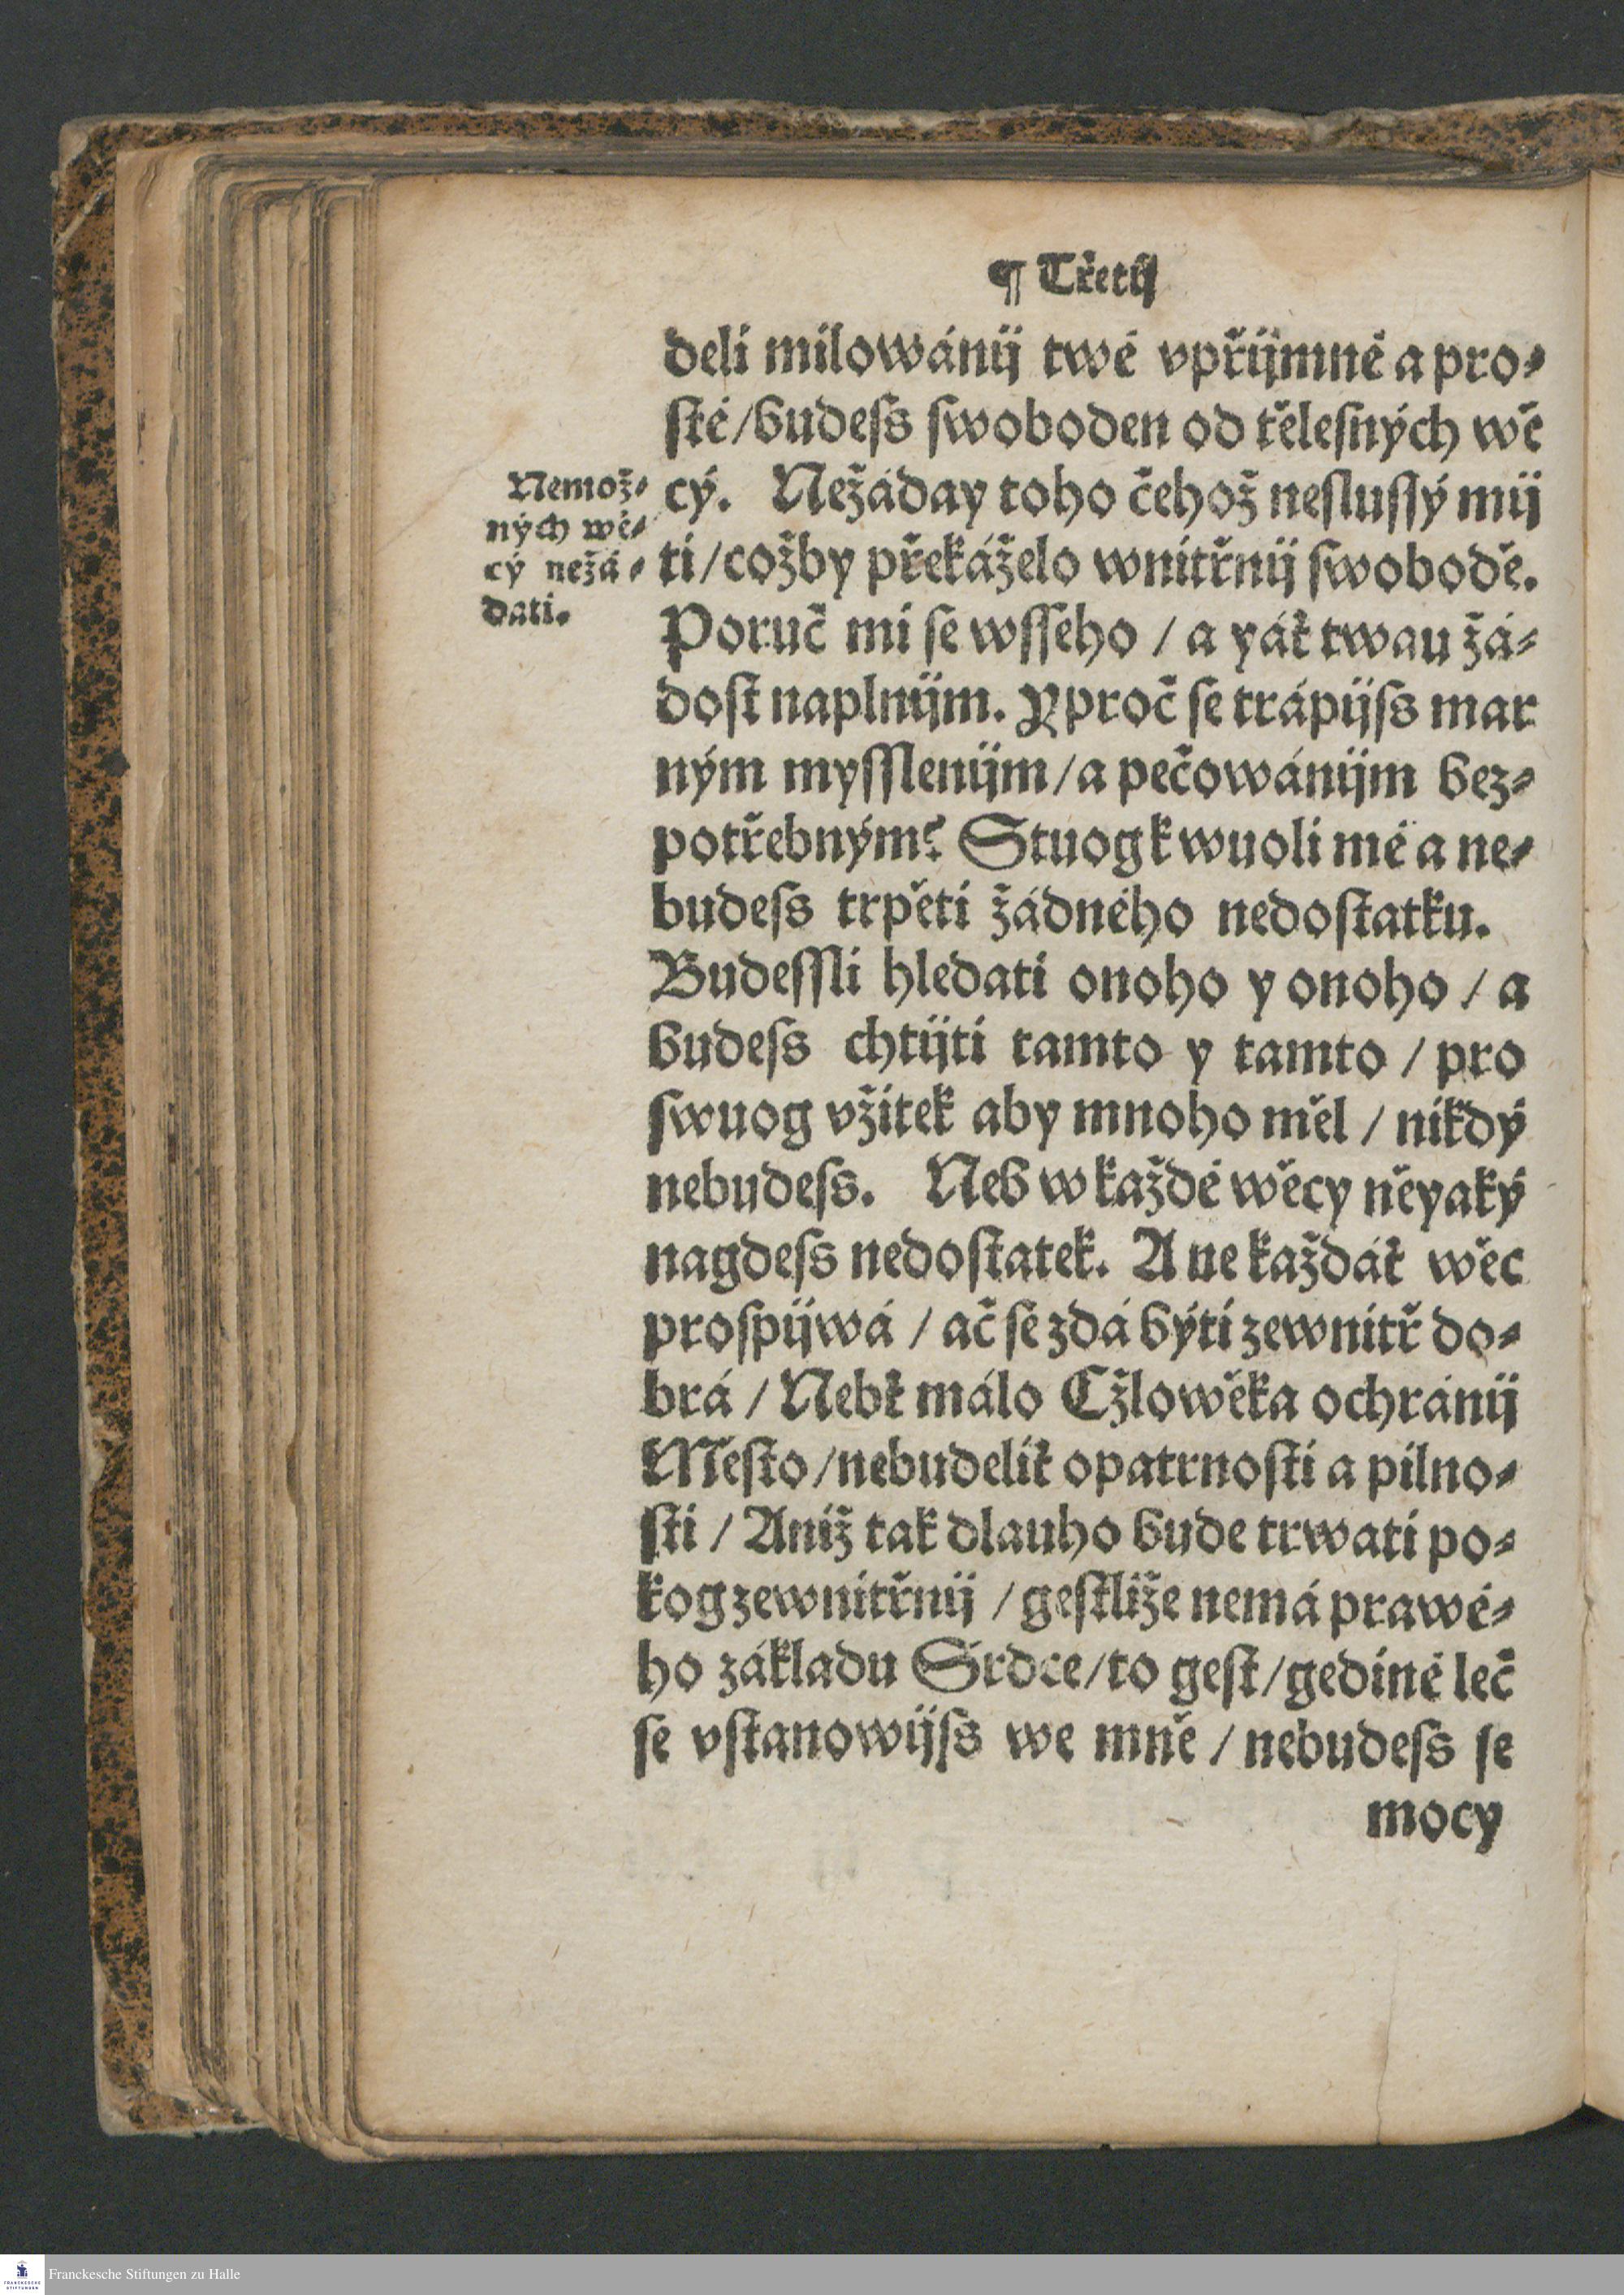 ¶ Třetij
deli milowánij twé vpřijmné a pro⸗
sté/budeſs ſwoboden od tělesných wě
Nemož⸗
ných wě⸗
cý nežá⸗
dati.
cý. Nežáday toho čehož neſluſſý mij
ti/cožby překáželo wnitřnij ſwobodě.
Poruč mi ſe wſſeho / a yáť twau žá⸗
doſt naplnijm. Y proč ſe trápijſs mar
ným myſſlenijm/a pečowánijm bez⸗
potřebným? Stuog k wuoli mé a ne⸗
budeſs trpěti žádného nedoſtatku.
Budeſſli hledati onoho y onoho / a
budeſs chtijti tamto y tamto / pro
ſwuog vžitek aby mnoho měl / nikdý
nebudeſs. Neb w každé wěcy něyaký
nagdeſs nedoſtatek. A ne každáť wěc
proſpijwá / ač ſe zdá býti zewnitř do⸗
brá / Nebť málo Cžlowěka ochránij
Měſto/nebudeliť opatrnoſti a pilno⸗
ſti / Aniž tak dlauho bude trwati po⸗
kog zewnitřnij / geſtliže nemá prawé⸗
ho základu Srdce/to geſt/gediné leč
ſe vſtanowijſs we mně / nebudeſs ſe
mocy
Franckesche Stiftungen zu Halle